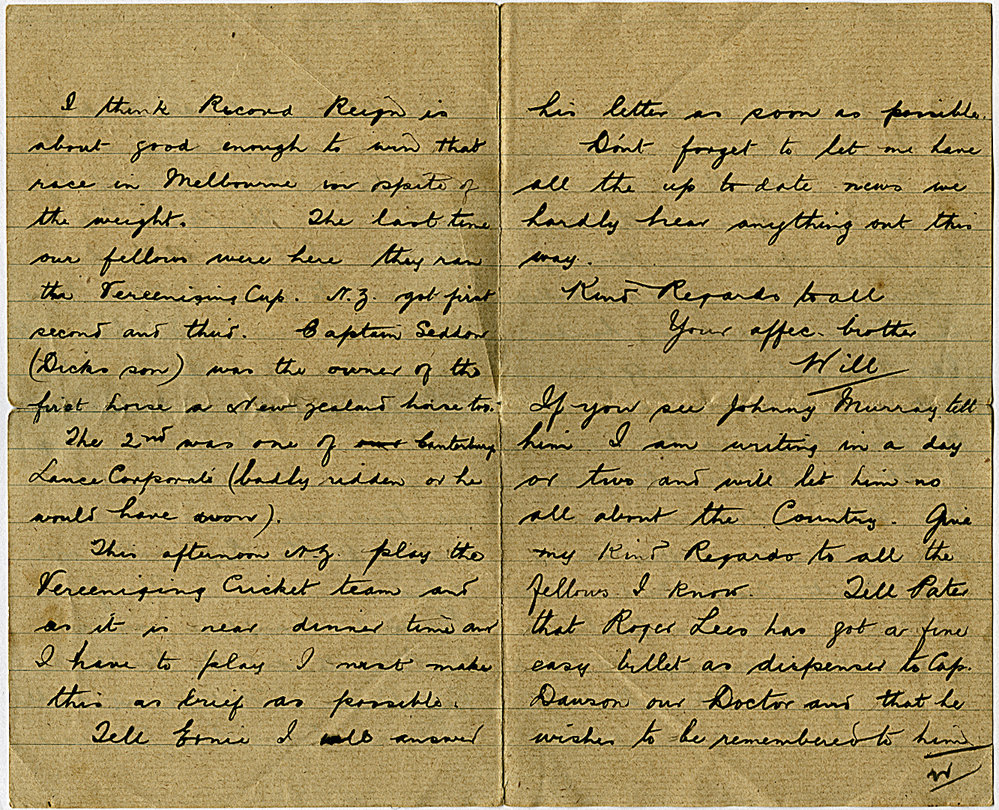 I think Record Reign is
about good enough to win that
race in Melbourne in spite of
the weight. The last time
our fellows were here they ran
the Vereeniging Cup. N.Z. got first
second and third. Captain Seddon
(Dicks son) was the owner of the
first horse a New Zealand horse too.
The 2nd was one of our Canterbury
Lance Corporals (badly ridden or he
would have won).
This afternoon N.Z. play the
Vereeniging Cricket team and
as it is near dinner time and
I have to play I must make
this as brief as possible.
Tell Ernie I will answer
his letter as soon as possible.
Don't forget to let me have
all the up to date news we
hardly hear anything out this
way.
Kind Regards to all
Your affec. brother
Will
If you see Johnny Murray tell
him I am writing in a day
or two and will let him no
all about the Country. Give
my Kind Regards to all the
fellows I know. Tell Pater
that Roger Lees has got a fine
easy billet as dispenser to Cap.
Dawson our Doctor and that he
wishes to be remembered to him
W